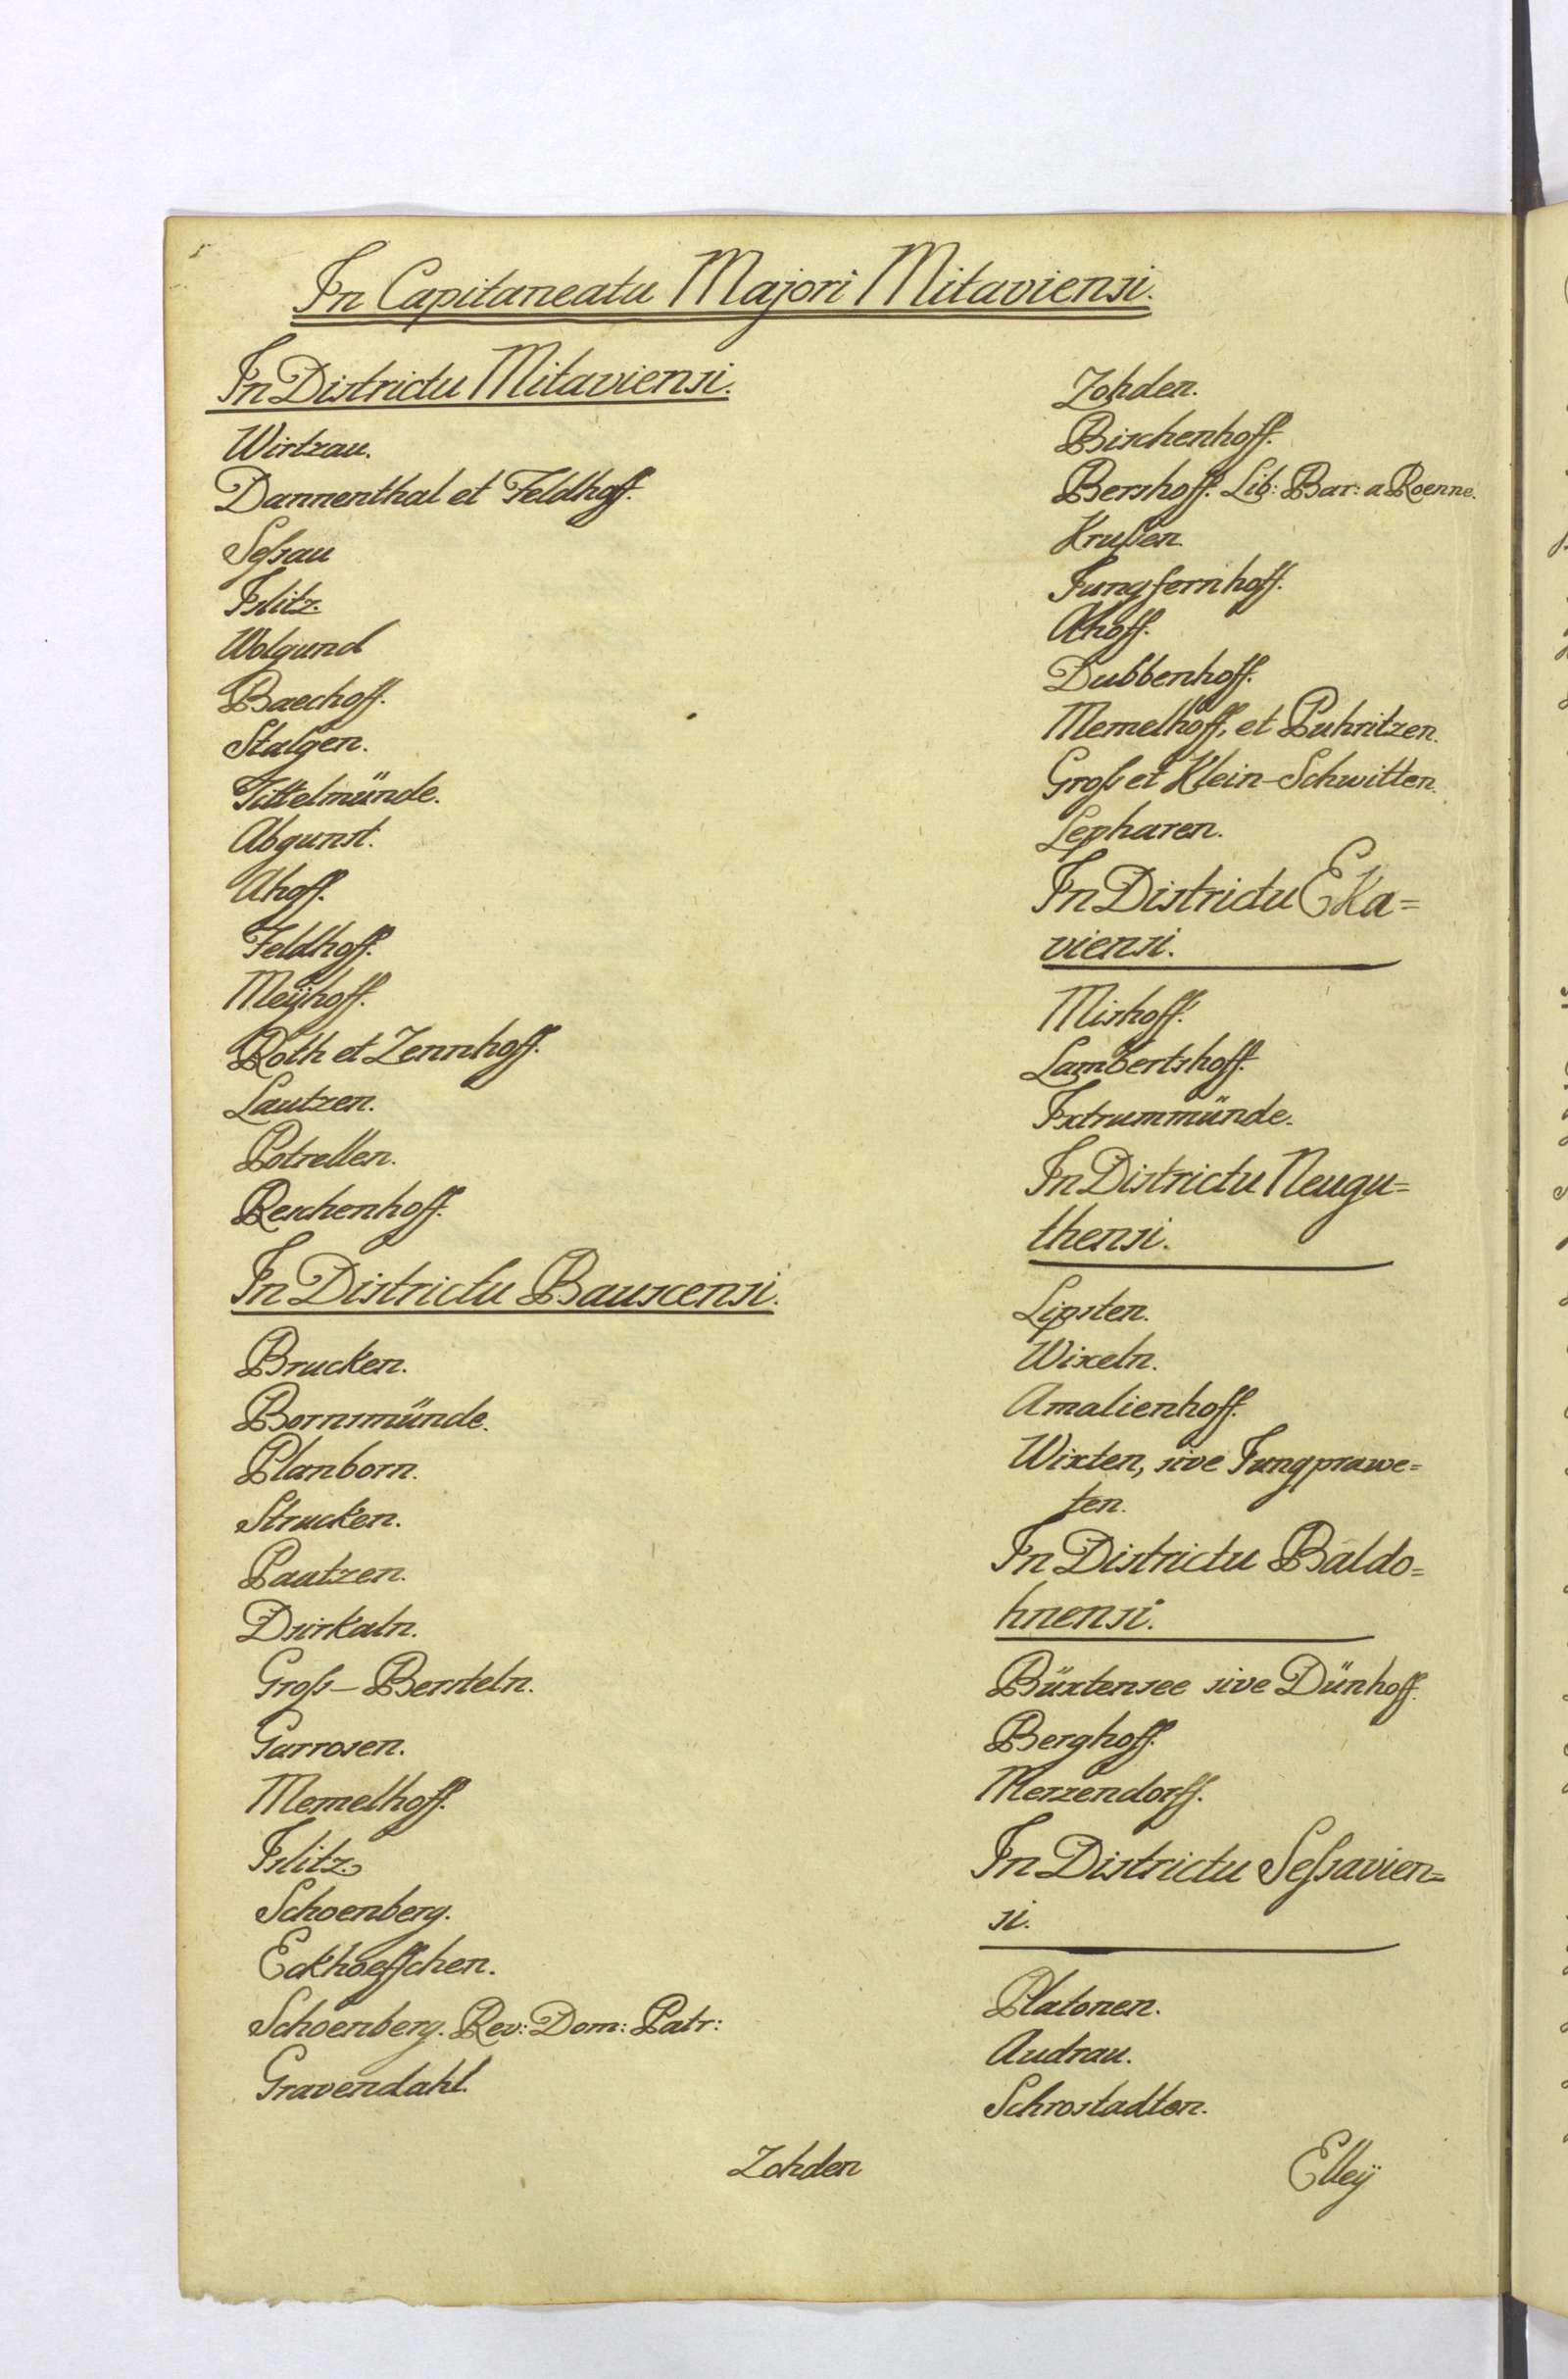 In Capitaneatu Majori Mitaviensi.
In Districtu Mitaviensi.
Wirtzau.
Dannenthal et Feldhoff.
Seſsau
Islitz.
Wolgund
Baechoff.
Stalgen.
Tittelmünde.
Abgunst.
Ahoff.
Feldhoff.
Meÿhoff.
Roth et Zennhoff.
Lautzen.
Potrellen.
Reschenhoff.
In Districtu Bauscensi.
Brucken.
Bornsmünde.
Planborn.
Strucken.
Paatzen.
Dsirkaln.
Groſs-Bersteln.
Garrosen.
Memelhoff.
Islitz
Schoenberg.
Eckhoeffchen.
Schoenberg. Rev: Dom: Patr:
Gravendahl.
Zohden
Zohden.
Bischenhoff.
Bershoff. Lib: Bar: a Roenne.
Kruſsen.
Jungfernhoff.
Ahoff.
Dubbenhoff.
Memelhoff, et Puhritzen.
Groſs et Klein-Schwitten.
Lepharen.
In Districtu Eka=
viensi.
Mishoff.
Lambertshoff.
Extrummünde.
In Districtu Neugu=
thensi.
Lipsten.
Wixeln.
Amalienhoff.
Wixten, sive Jungprawe=
ten.
In Districtu Baldo=
hnensi.
Büxtensee sive Dünhoff.
Berghoff.
Merzendorff.
In Districtu Seſsavien=
si.
Platonen.
Audrau.
Schrostadten.
Elleÿ